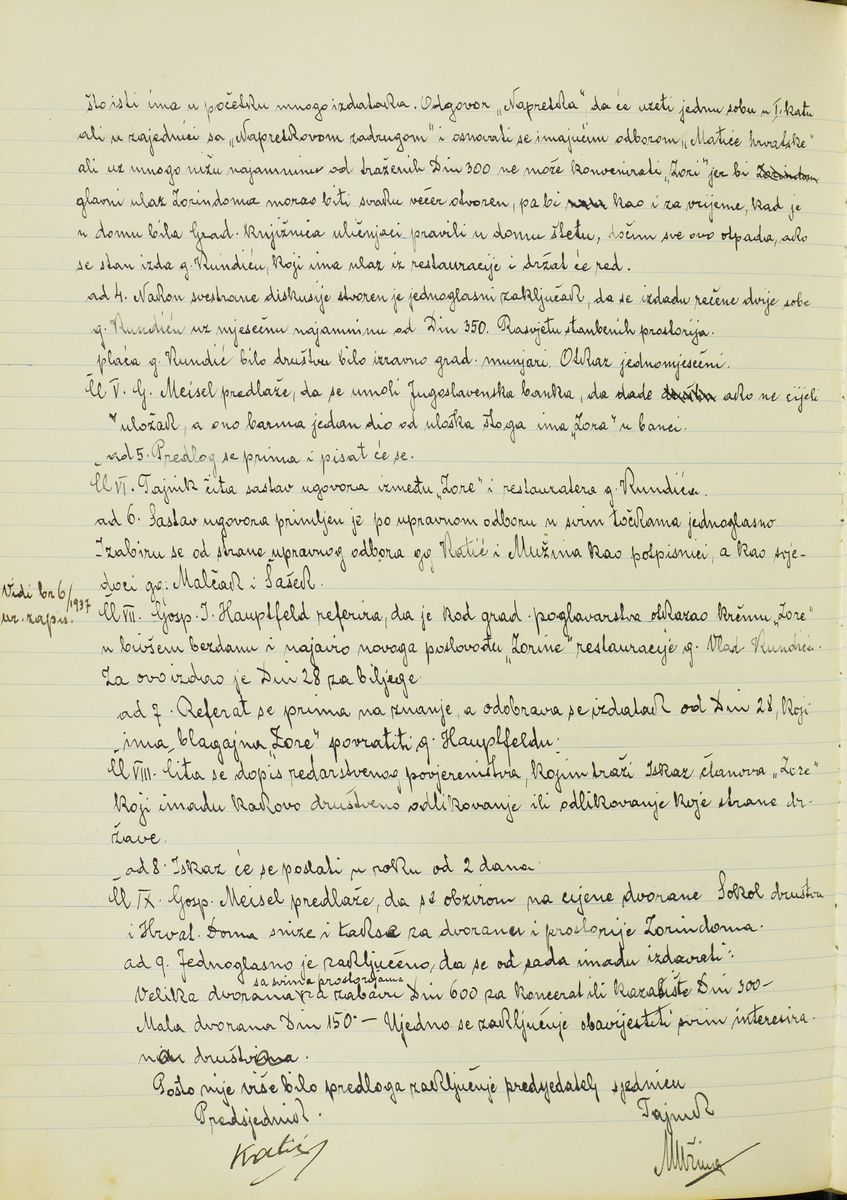 što isti ima u početku mnogo izdataka. Odgovor „Napretka“, da će uzeti jednu sobu u I. katu
ali u zajednici sa „Napretkovom zadrugom“ i osnovati se imajućim odborom „Matice hrvatske“
ali uz mnogo nižu najamninu od traženih Din 300 ne može konvenirati „Zori“ jer bi Zorindom
glavni ulaz Zorindoma morao biti svaku večer otvoren, pa bi kao i za vrijeme, kad je
u domu bila Grad. knjižnica uličnjaci pravili u domu štetu, dočim sve ovo otpada, ako
se stan izda g. Rundiću, koji ima ulaz iz restauracije i držat će red.
ad 4. Nakon svestrane diskusije stvoren je jednoglasni zaključak, da se izdadu rečene dvije sobe
g. Rundiću uz mjesečnu najamninu od Din 350. Rasvjetu stanbenih prostorija
plaća g. Rundić bilo društvu bilo izravno grad. munjari. Otkaz jednomjesečni.
Čl V. G. Meisel predlaže, da se umoli Jugoslavenska banka, da dade ako ne cijeli
uložak, a ono barma jedan dio od uloška štoga ima „Zora“ u banci.
ad 5. Predlog se prima i pisat će se.
Čl VI. Tajnik čita sastav ugovora između „Zore“ i restauratera g. Rundića.
ad 6. Sastav ugovora primljen je po upravnom odboru u svim točkama jednoglasno
Izabiru se od strane upravnog odbora gg Katić i Mužina kao potpisnici, a kao svje-
doci gg. Malčak i Sašek.
Vidi br 6/1937
ur. zapis.
Čl VII. Gosp. I. Hauptfeld referira, da je kod grad. poglavarstva otkazao krčmu „Zore“
u bivšem bezdanu i najavio novoga poslovođu „Zorine“ restauracije g. Vlad Rundića.
Za ovo izdao je Din 28 za biljege.
ad 7. Referat se prima na znanje, a odobrava se izdatak od Din 28, koji
ima blagajna „Zore“ povratiti g. Hauptfeldu.
Čl VIII. Čita se dopis redarstvenog povjereništva, kojim traži Iskaz članova „Zore“
koji imadu kakovo društveno odlikovanje ili odlikovanje koje strane dr-
žave.
ad 8. Iskaz će se poslati u roku od 2 dana.
Čl IX. Gosp. Meisel predlaže, da se obzirom na cijene dvorane Sokol društva
i Hrvat. Doma snize i takse za dvoranu i prostorije Zorindoma.
ad 9. Jednoglasno je zaključeno, da se od sada imadu izdavati:
sa svima prostorijama
Velika dvorana za zabavu Din 600 za koncerat ili kazalište Din 300 —
Mala dvorana Din 150.— Ujedno se zaključuje obavijestiti svim interesira-
nim društvima.
Pošto nije više bilo predloga zaključuje predsjedatelj sjednicu
Predsjednik. Tajnik
Katić Mužina